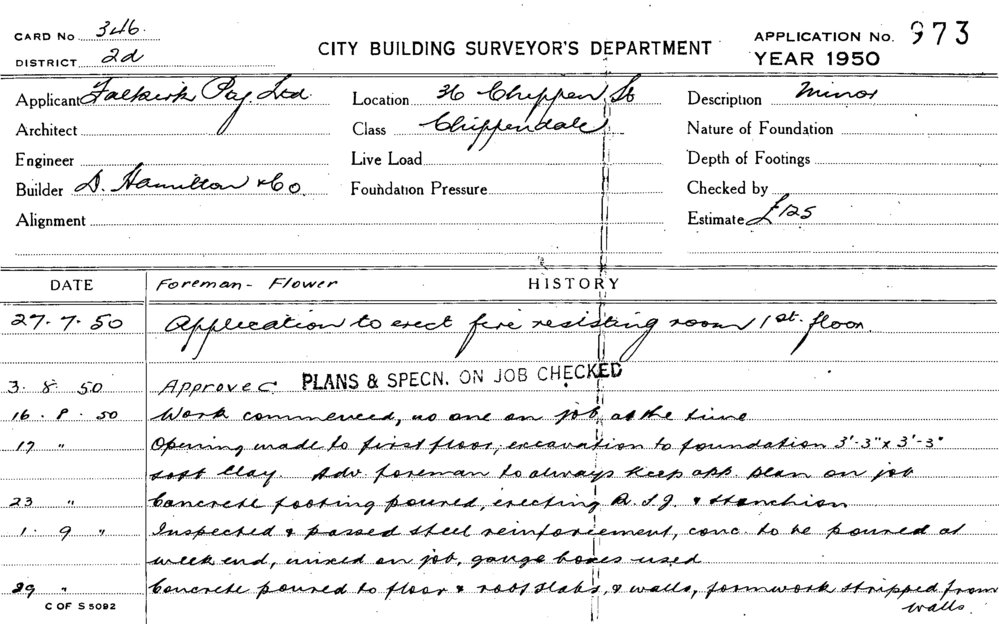 CARD No 346.
DISTRICT 2d
CITY BUILDING SURVEYOR'S DEPARTMENT
APPLICATION No. 973
YEAR 1950
Applicant Falkirk Pty. Ltd.
Location 36 Chippen St
Description Minor
Architect
Class Chippendale
Nature of Foundation
Engineer
Live Load
Depth of Footings
Builder D. Hamilton & Co.
Foundation Pressure
Checked by
Alignment
Estimate £125
DATE
HISTORY
Foreman - Flower
27.7.50 Application to erect fire resisting room 1st. floor.
3.8.50 Approved PLANS & SPECN. ON JOB CHECKED
16.8.50 Work commenced, no one on job at the time
17 " Opening made to first floor, excavation to foundation 3'-3" x 3'-3"
soft clay. Adv. foreman to always keep app. plan on job
23 " Concrete footing poured, erecting R.S.J. & stanchion
1.9 " Inspected & passed steel reinforcement, conc. to be poured at
week end, mixed on job, gauge boxes used
29 " Concrete poured to floor & roof slabs, & walls, formwork stripped from
walls.
C OF S 5092